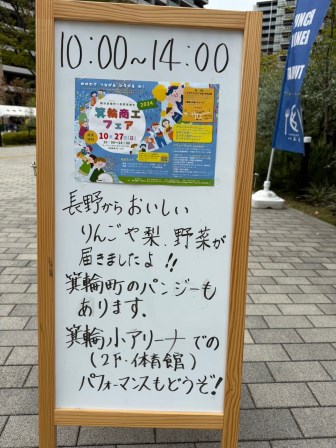 10:00~14:00
2024
箕輪商工
フェア
10月27日(日)
長野からおいしい
りんごや梨、野菜が
届きましたよ!!
箕輪町のパンジーも
あります。
箕輪小アリーナでの
(2F・体育館)
パフォーマンスもどうぞ!